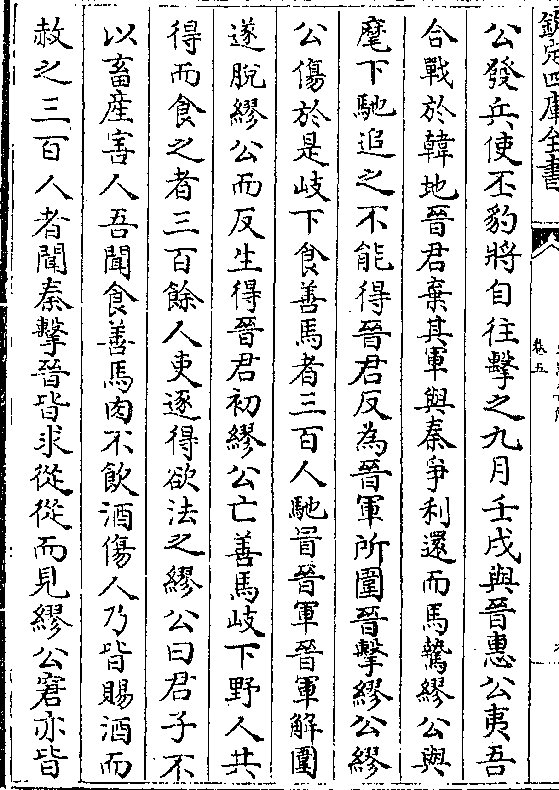 欽定四庫全書
卷五
公發兵使丕豹將自往擊之九月壬戌與晉惠公夷吾
合戰於韓地晉君棄其軍與秦爭利還而馬騺繆公與
麾下馳追之不能得晉君反為晉軍所圍晉擊繆公繆
公傷於是岐下食善馬者三百人馳冒晉軍晉軍解圍
遂脫繆公而反生得晉君初繆公亡善馬岐下野人共
得而食之者三百餘人吏逐得欲法之繆公曰君子不
以畜産害人吾聞食善馬肉不飲酒傷人乃皆賜酒而
赦之三百人者聞秦擊晉皆求從從而見繆公窘亦皆